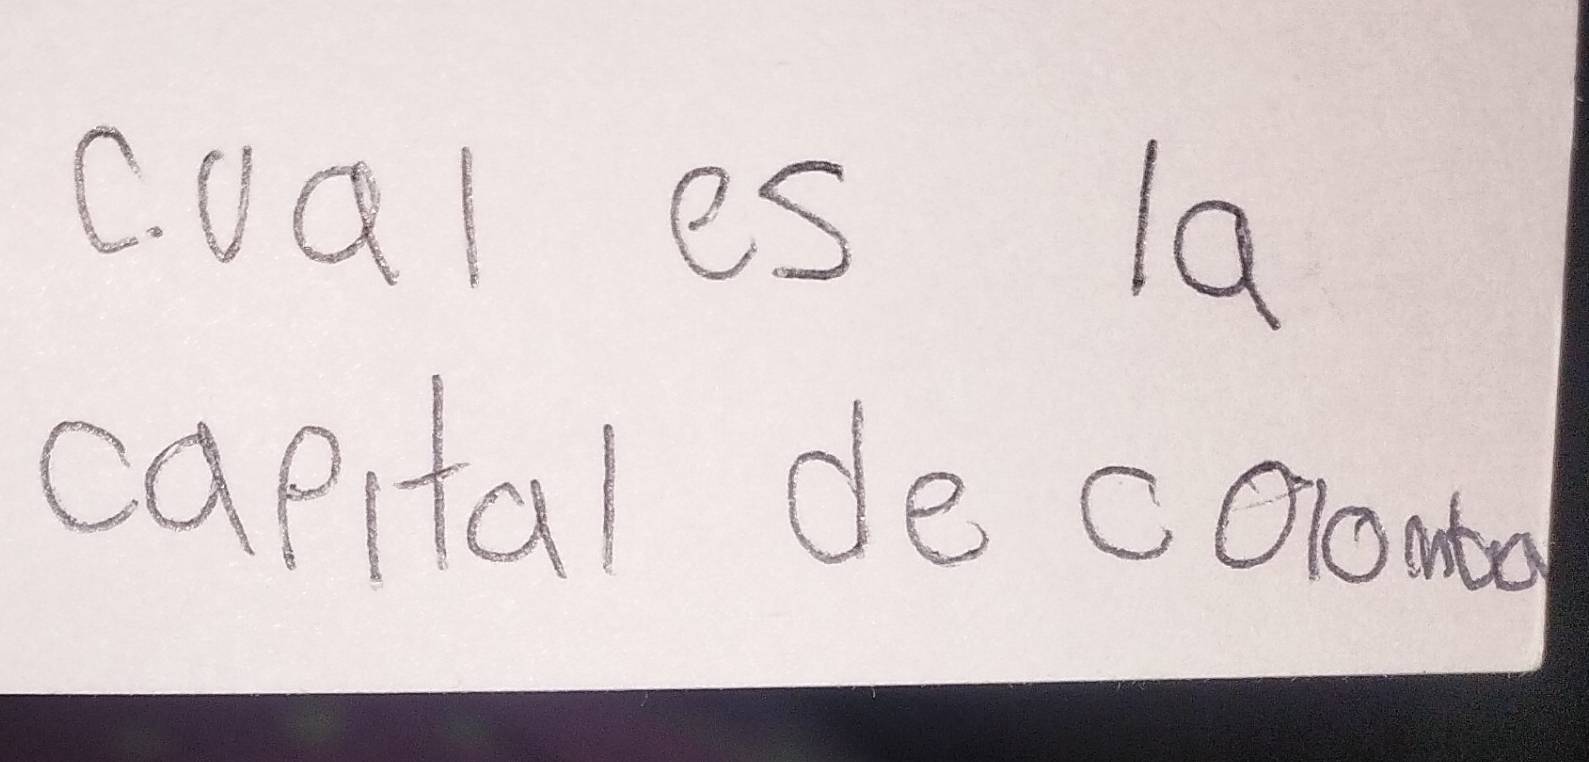 cual es la
capital de colomba